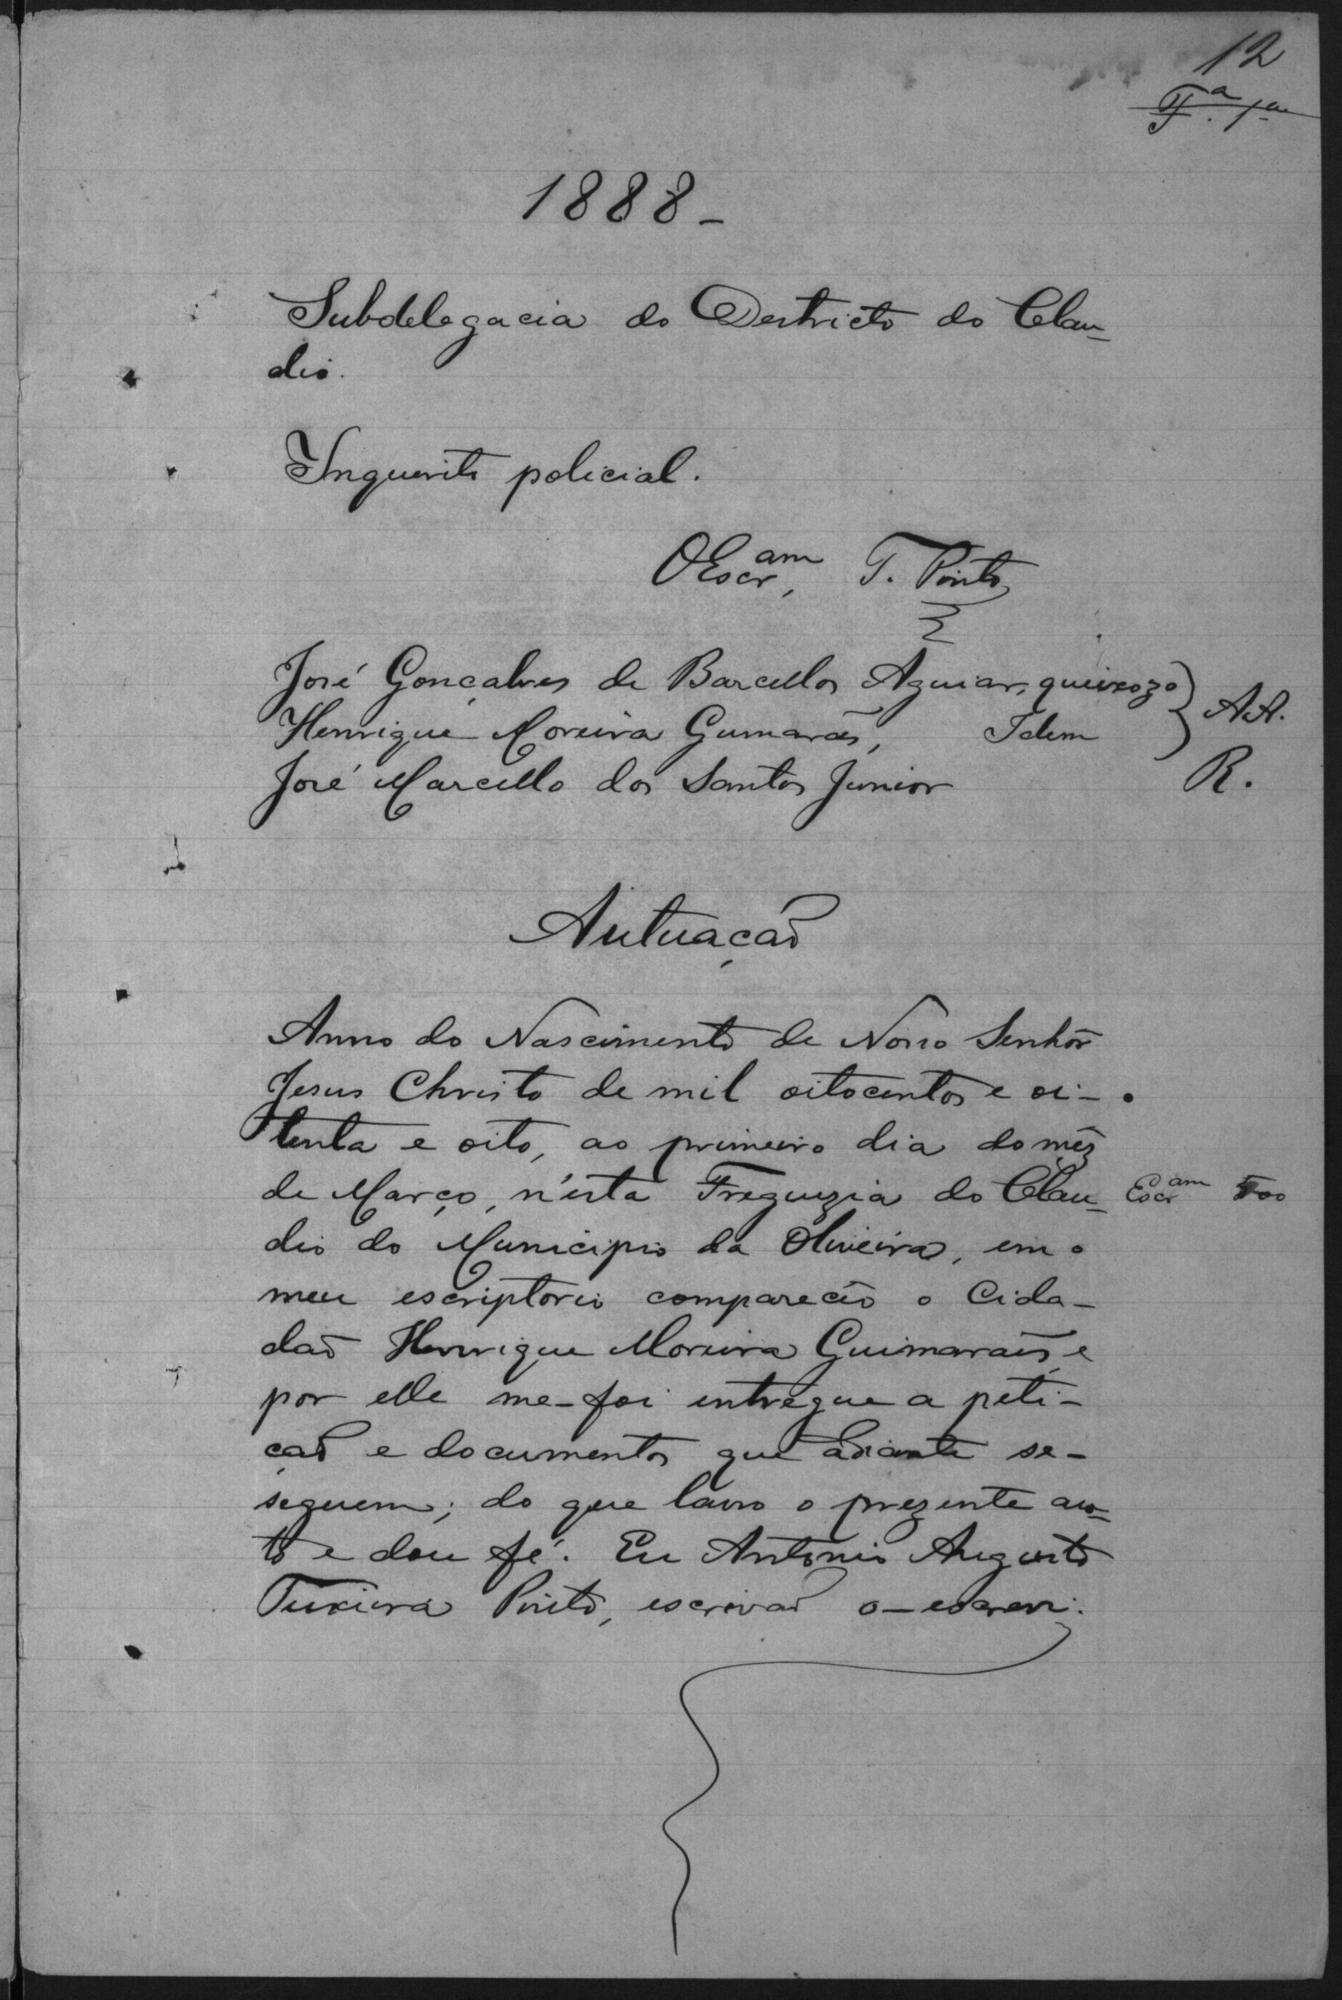 12
F.ª 1ª
1888-
Subdelegacia do Destricto do Clau-
dio.
Inquerito policial.
O Escr.am, T. Pinto
José Goncalves de Barcellos Aguiar, queixozo
Henrique Moreira Gumarães, Idem } AA.
José Marcello dos Santos Junior R.
Autuação
Anno do Nascimento de Nosso Senhôr
Jesus Christo de mil oitocentos e oi-
tenta e oito, ao primeiro dia do mêz
de Março, n'ésta Freguezia do Clau-
Escr.am 500
dio do Municipio da Oliveira, em o
meu escriptorio compareceo o Cida-
dão Henrique Moreira Guimarães, e
por elle me-foi entregue a peti-
ção e documentos que adiante se-
seguem; do que lavro o prezente au-
to e dou fé. Eu Antonio Augusto
Teixeira Pinto, escrivão o-escrevi.